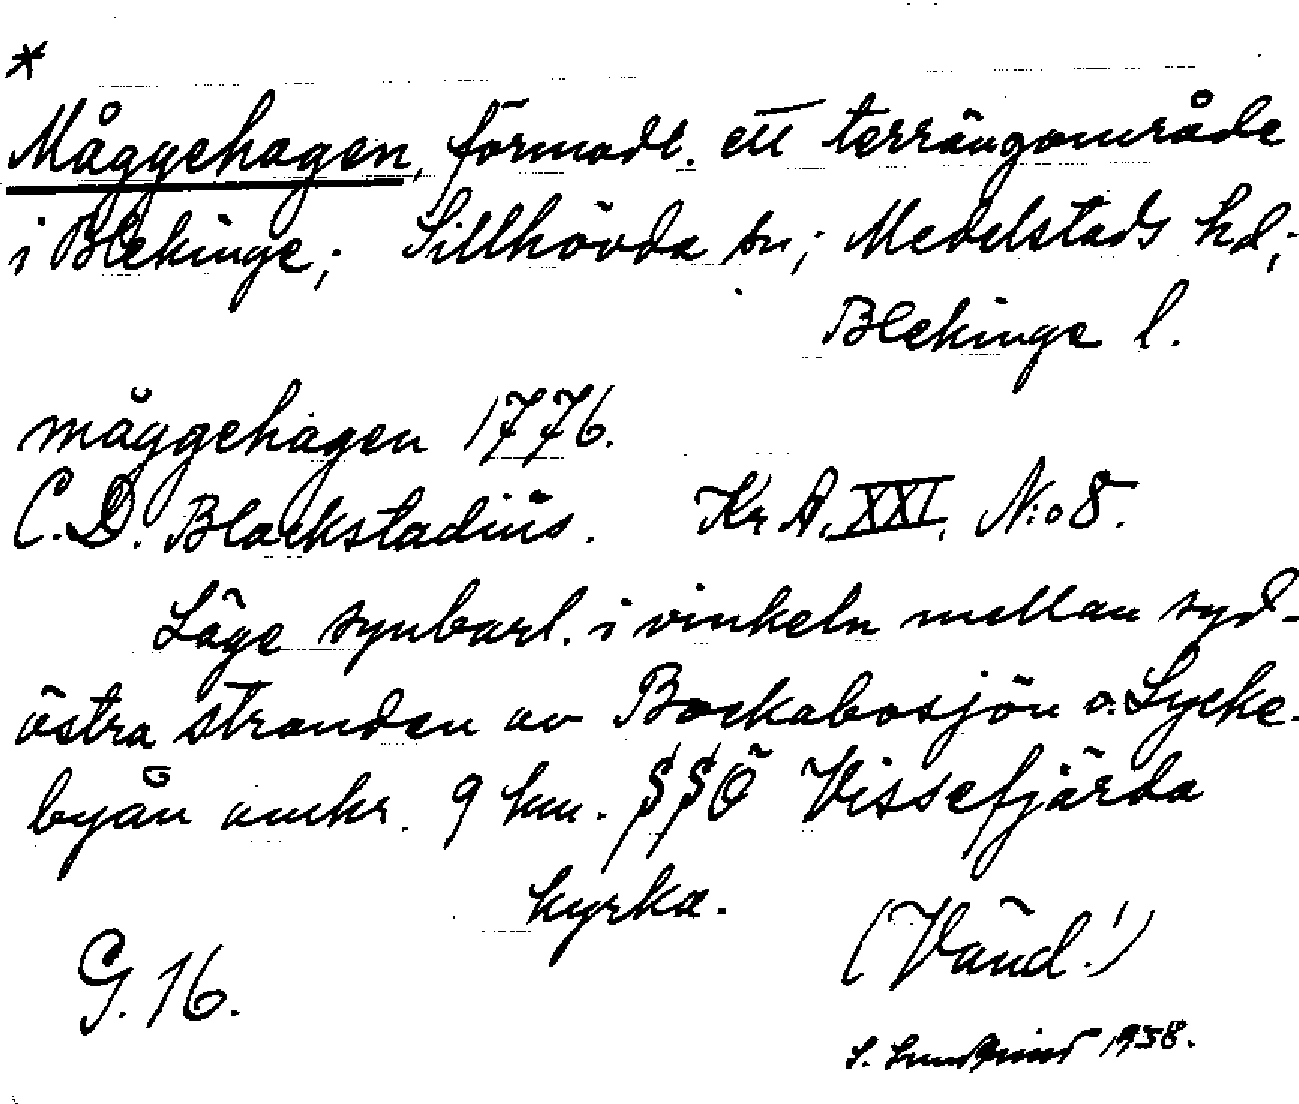 *
Måggehagen, förmodl. ett terrängområde
i Blekinge; Sillhövda sn; Medelstads hd;
Blekinge l.
måggehagen 1776.
C. D. Blackstadius. Kr A. XXI. N:o 8.
Läge synbarl. i vinkeln mellan syd-
östra stranden av Bockabosjön o. Lycke-
byån omkr. 9 km. SSÖ Vissefjärda
kyrka.
(Vänd!)
G. 16.
S. 1938.